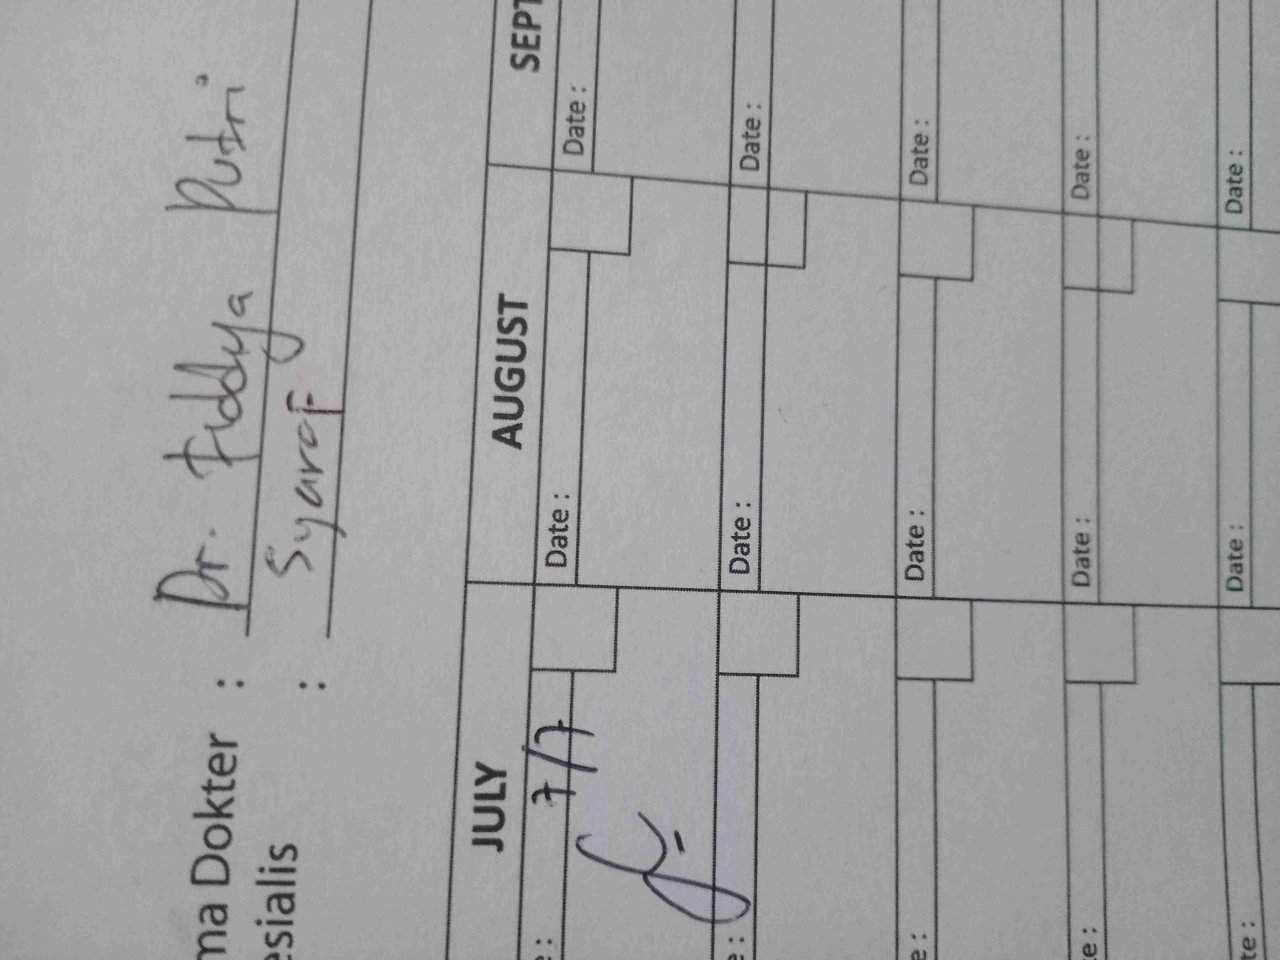 ma Dokter : Dr. Fiddya Putri
esialis : Syaraf
JULY AUGUST SEPT
e : 7/7 Date : Date :
e : Date : Date :
e : Date : Date :
e : Date : Date :
te : Date : Date :